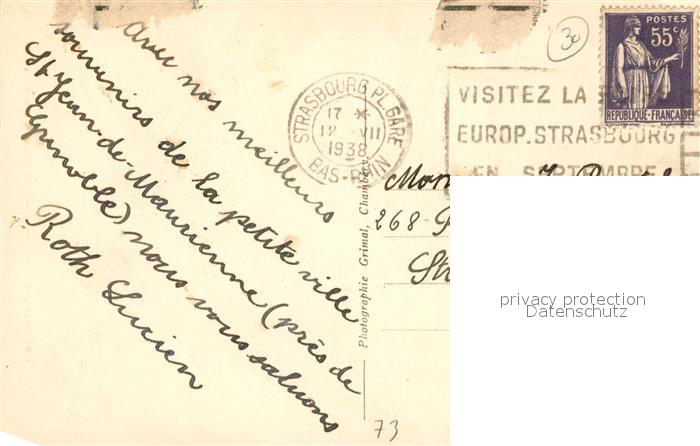 Avec nos meilleurs
souvenirs de la petite ville
St Jean-de-Maurienne (près de
Grenoble) nous vous saluons
Roth Lucien
30
POSTES
55c
REPUBLIQUE-FRANÇAISE
STRASBOURG PL. GARE
17 *
12 VII
1938
BAS-RHIN
VISITEZ LA
EUROP. STRASBOURG
EN SEPTEMBRE
268
Photographie Grimal, Chambéry
73
privacy protection
Datenschutz